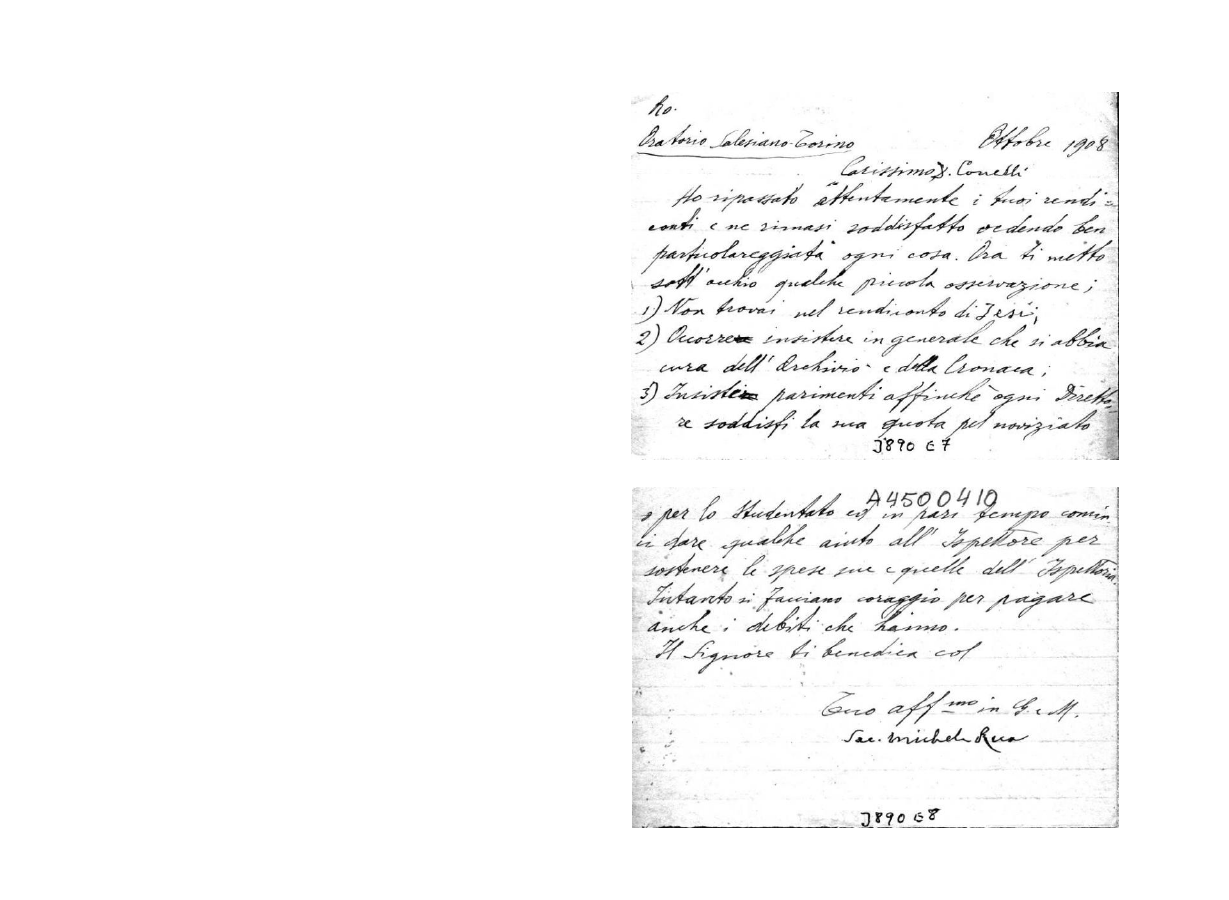 ho.
Oratorio Salesiano-Torino Ottobre 1908
Carissimo D. Conelli
Ho ripassato attentamente i tuoi rendi=
conti e ne rimasi soddisfatto vedendo ben
particolareggiata ogni cosa. Ora ti metto
sott' occhio qualche piccola osservazione;
1) Non trovai nel rendiconto di Jesi;
2) Occorre insistere in generale che si abbia
cura dell' Archivio e della Cronaca;
3) parimenti affinchè ogni Diretto-
re soddisfi la sua quota pel noviziato
J890 E7
A4500410
e per lo studentato ed in pari tempo comin
ci dare qualche aiuto all' Ispettore per
sostenere le spese sue e quelle dell' Ispettoria.
Intanto si facciano coraggio per pagare
anche i debiti che hanno.
Il Signore ti benedica col
Tuo aff.mo in G. e M.
Sac. Michele Rua
J890 E8